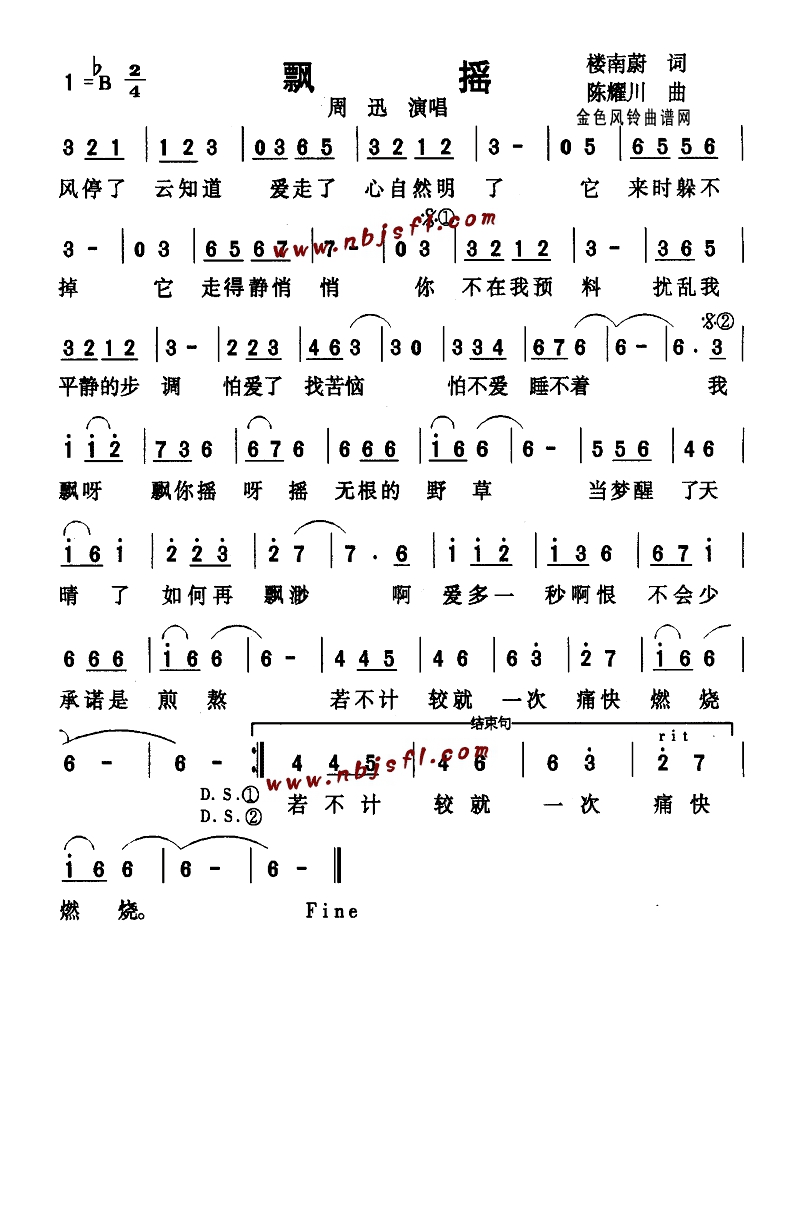 1=♭B 2/4 飘 摇 楼南蔚 词
周 迅 演唱 陈耀川 曲
金色风铃曲谱网
3 2 1 | 1 2 3 | 0 3 6 5 | 3 2 1 2 | 3 - | 0 5 | 6 5 5 6 |
风停了 云知道 爱走了 心自然明 了 它 来时躲不
𝄋①
www.nbjsfl.com
3 - | 0 3 | 6 5 6 7 | 7 - | 0 3 | 3 2 1 2 | 3 - | 3 6 5 |
掉 它 走得静悄 悄 你 不在我预 料 扰乱我
𝄋②
3 2 1 2 | 3 - | 2 2 3 | 4 6 3 | 3 0 | 3 3 4 | 6 7 6 | 6 - | 6 . 3 |
平静的步 调 怕爱了 找苦恼 怕不爱 睡不着 我
i i 2̇ | 7 3 6 | 6 7 6 | 6 6 6 | i 6 6 | 6 - | 5 5 6 | 4 6 |
飘呀 飘你摇 呀摇 无根的 野草 当梦醒 了天
i 6 i | 2̇ 2̇ 3̇ | 2̇ 7 | 7 . 6 | i i 2̇ | i 3 6 | 6 7 i |
晴了 如何再 飘渺 啊 爱多一 秒啊恨 不会少
6 6 6 | i 6 6 | 6 - | 4 4 5 | 4 6 | 6 3̇ | 2̇ 7 | i 6 6 |
承诺是 煎熬 若不计 较就 一次 痛快 燃烧
结束句
rit
6 - | 6 - :‖ 4 4 5 | 4 6 | 6 3̇ | 2̇ 7 |
www.nbjsfl.com
D.S.① 若不计 较就 一次 痛快
D.S.②
i 6 6 | 6 - | 6 - ‖
燃 烧。 Fine